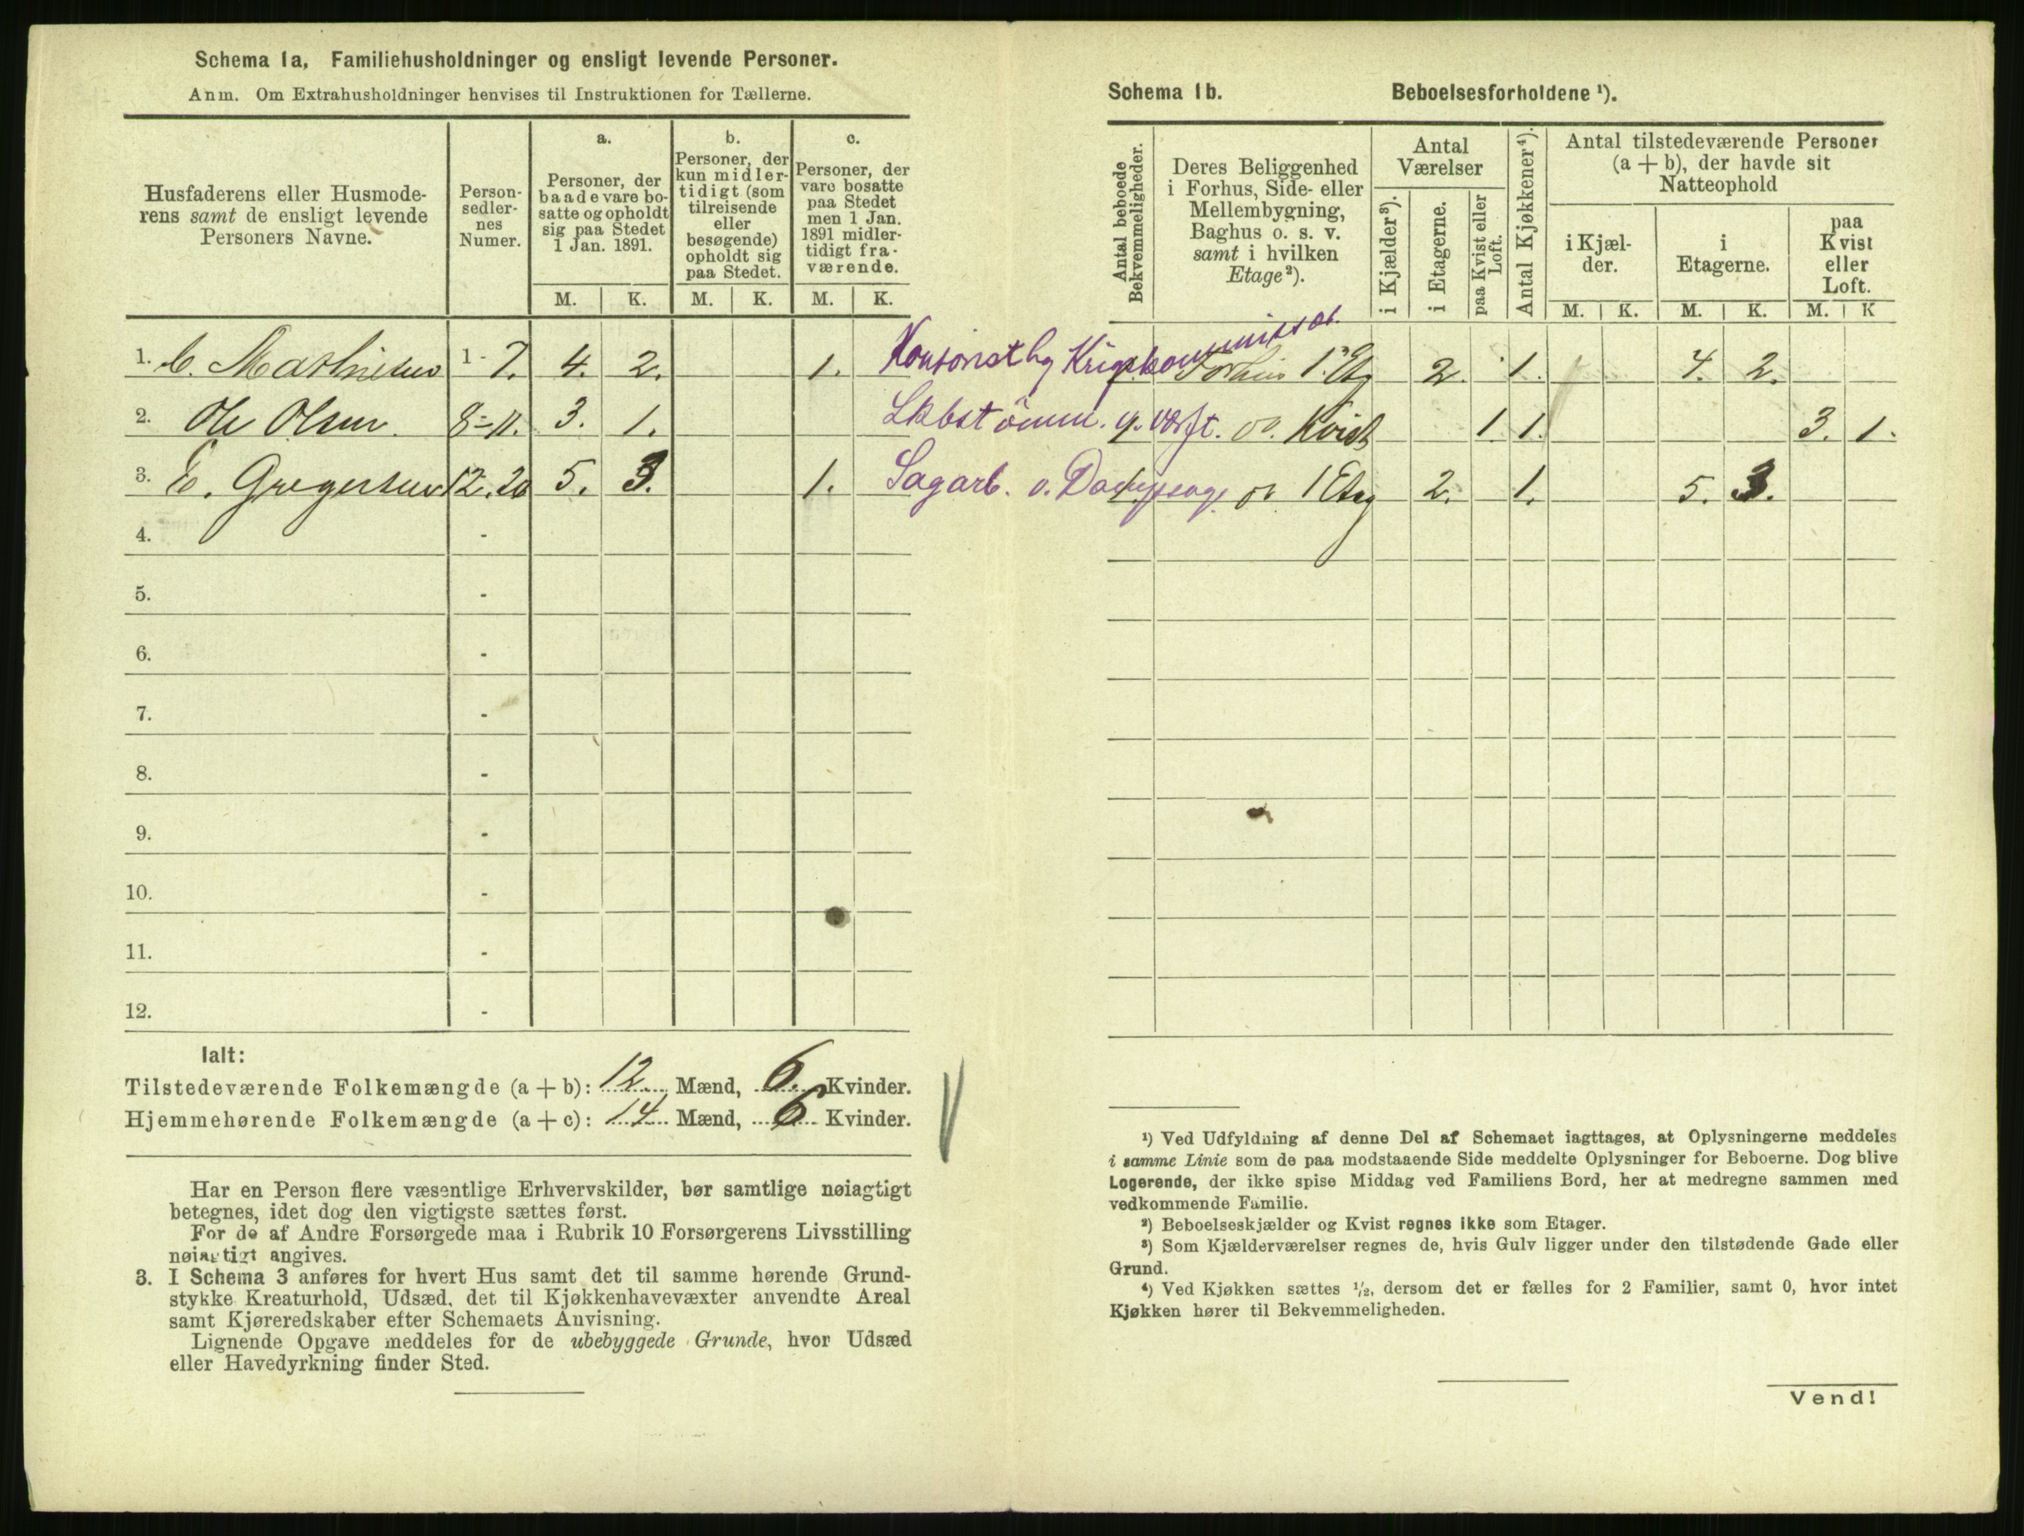 Schema 1a, Familiehusholdninger og ensligt levende Personer.
Anm. Om Extrahusholdninger henvises til Instruktionen for Tællerne.
Husfaderens eller Husmoderens samt de ensligt levende Personers Navne.
Personsedlernes Numer.
a. Personer, der baade vare bosatte og opholdt sig paa Stedet 1 Jan. 1891.
b. Personer, der kun midlertidigt (som tilreisende eller besøgende) opholdt sig paa Stedet.
c. Personer, der vare bosatte paa Stedet men 1 Jan. 1891 midlertidigt fraværende.
M. K. M. K. M. K.
1. C. Mathisen 1 - 7. 4. 2. 1.
2. Ole Olsen. 8 - 11. 3. 1.
3. E. Gregersen 12 - 20 5. 3. 1.
4. -
5. -
6. -
7. -
8. -
9. -
10. -
11. -
12. -
Ialt:
Tilstedeværende Folkemængde (a + b): 12. Mænd, 6. Kvinder.
Hjemmehørende Folkemængde (a + c): 14 Mænd, 6 Kvinder.
Har en Person flere væsentlige Erhvervskilder, bør samtlige nøiagtigt
betegnes, idet dog den vigtigste sættes først.
For de af Andre Forsørgede maa i Rubrik 10 Forsørgerens Livsstilling
nøiagtigt angives.
3. I Schema 3 anføres for hvert Hus samt det til samme hørende Grund-
stykke Kreaturhold, Udsæd, det til Kjøkkenhavevæxter anvendte Areal
samt Kjøreredskaber efter Schemaets Anvisning.
Lignende Opgave meddeles for de ubebyggede Grunde, hvor Udsæd
eller Havedyrkning finder Sted.
Schema 1b. Beboelsesforholdene ¹).
Antal beboede Bekvemmeligheder.
Deres Beliggenhed i Forhus, Side- eller Mellembygning, Baghus o. s. v. samt i hvilken Etage²).
Antal Værelser
i Kjælder³).
i Etagerne.
paa Kvist eller Loft.
Antal Kjøkkener⁴).
Antal tilstedeværende Personer (a + b), der havde sit Natteophold
i Kjælder.
i Etagerne.
paa Kvist eller Loft.
M. K. M. K. M. K
Forhus 1. Etg 2. 1. 4. 2.
Kvist 1. 1. 3. 1.
Sagarb. v. Dampsag. 1 Etag 2. 1. 5. 3.
¹) Ved Udfyldning af denne Del af Schemaet iagttages, at Oplysningerne meddeles
i samme Linie som de paa modstaaende Side meddelte Oplysninger for Beboerne. Dog blive
Logerende, der ikke spise Middag ved Familiens Bord, her at medregne sammen med
vedkommende Familie.
²) Beboelseskjælder og Kvist regnes ikke som Etager.
³) Som Kjælderværelser regnes de, hvis Gulv ligger under den tilstødende Gade eller
Grund.
⁴) Ved Kjøkken sættes ¹/₂, dersom det er fælles for 2 Familier, samt 0, hvor intet
Kjøkken hører til Bekvemmeligheden.
Vend!